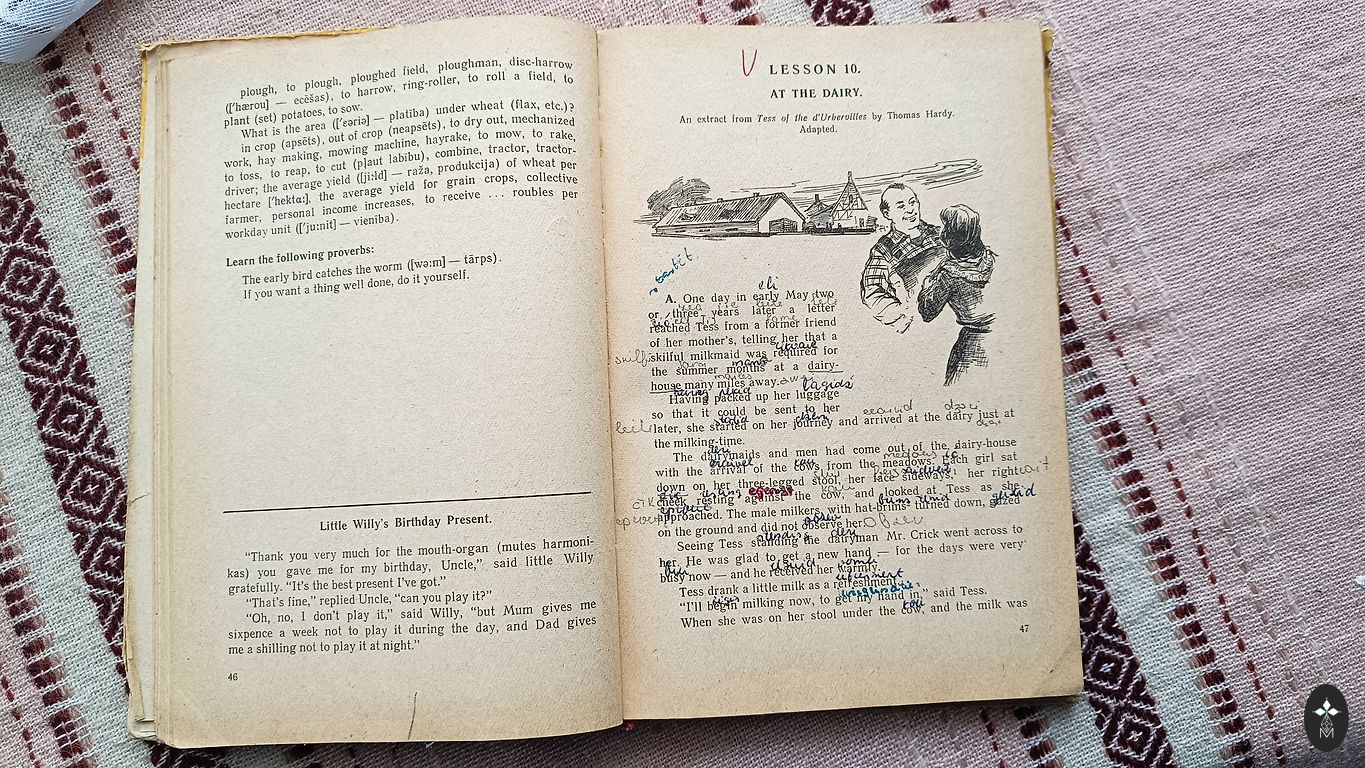 plough, to plough, ploughed field, ploughman, disc-harrow
(['hærou] — ecēšas), to harrow, ring-roller, to roll a field, to
plant (set) potatoes, to sow.
What is the area (['ɛəriə] — platība) under wheat (flax, etc.)?
in crop (apsēts), out of crop (neapsēts), to dry out, mechanized
work, hay making, mowing machine, hayrake, to mow, to rake,
to toss, to reap, to cut (pļaut labību), combine, tractor, tractor-
driver; the average yield ([ji:ld] — raža, produkcija) of wheat per
hectare ['hektɑ:], the average yield for grain crops, collective
farmer, personal income increases, to receive ... roubles per
workday unit (['ju:nit] — vienība).
Learn the following proverbs:
The early bird catches the worm ([wə:m] — tārps).
If you want a thing well done, do it yourself.
Little Willy's Birthday Present.
“Thank you very much for the mouth-organ (mutes harmoni-
kas) you gave me for my birthday, Uncle,” said little Willy
gratefully. “It's the best present I've got.”
“That's fine,” replied Uncle, “can you play it?”
“Oh, no, I don't play it,” said Willy, “but Mum gives me
sixpence a week not to play it during the day, and Dad gives
me a shilling not to play it at night.”
46
V LESSON 10.
AT THE DAIRY.
An extract from Tess of the d'Urbervilles by Thomas Hardy.
Adapted.
A. One day in early May two
or three years later a letter
reached Tess from a former friend
of her mother's, telling her that a
skilful milkmaid was required for
the summer months at a dairy-
house many miles away.
Having packed up her luggage
so that it could be sent to her
later, she started on her journey and arrived at the dairy just at
the milking-time.
The dairymaids and men had come out of the dairy-house
with the arrival of the cows from the meadows. Each girl sat
down on her three-legged stool, her face sideways, her right
cheek resting against the cow, and looked at Tess as she
approached. The male milkers, with hat-brims turned down, gazed
on the ground and did not observe her.
Seeing Tess standing the dairyman Mr. Crick went across to
her. He was glad to get a new hand — for the days were very
busy now — and he received her warmly.
Tess drank a little milk as a refreshment.
“I'll begin milking now, to get my hand in,” said Tess.
When she was on her stool under the cow, and the milk was
47